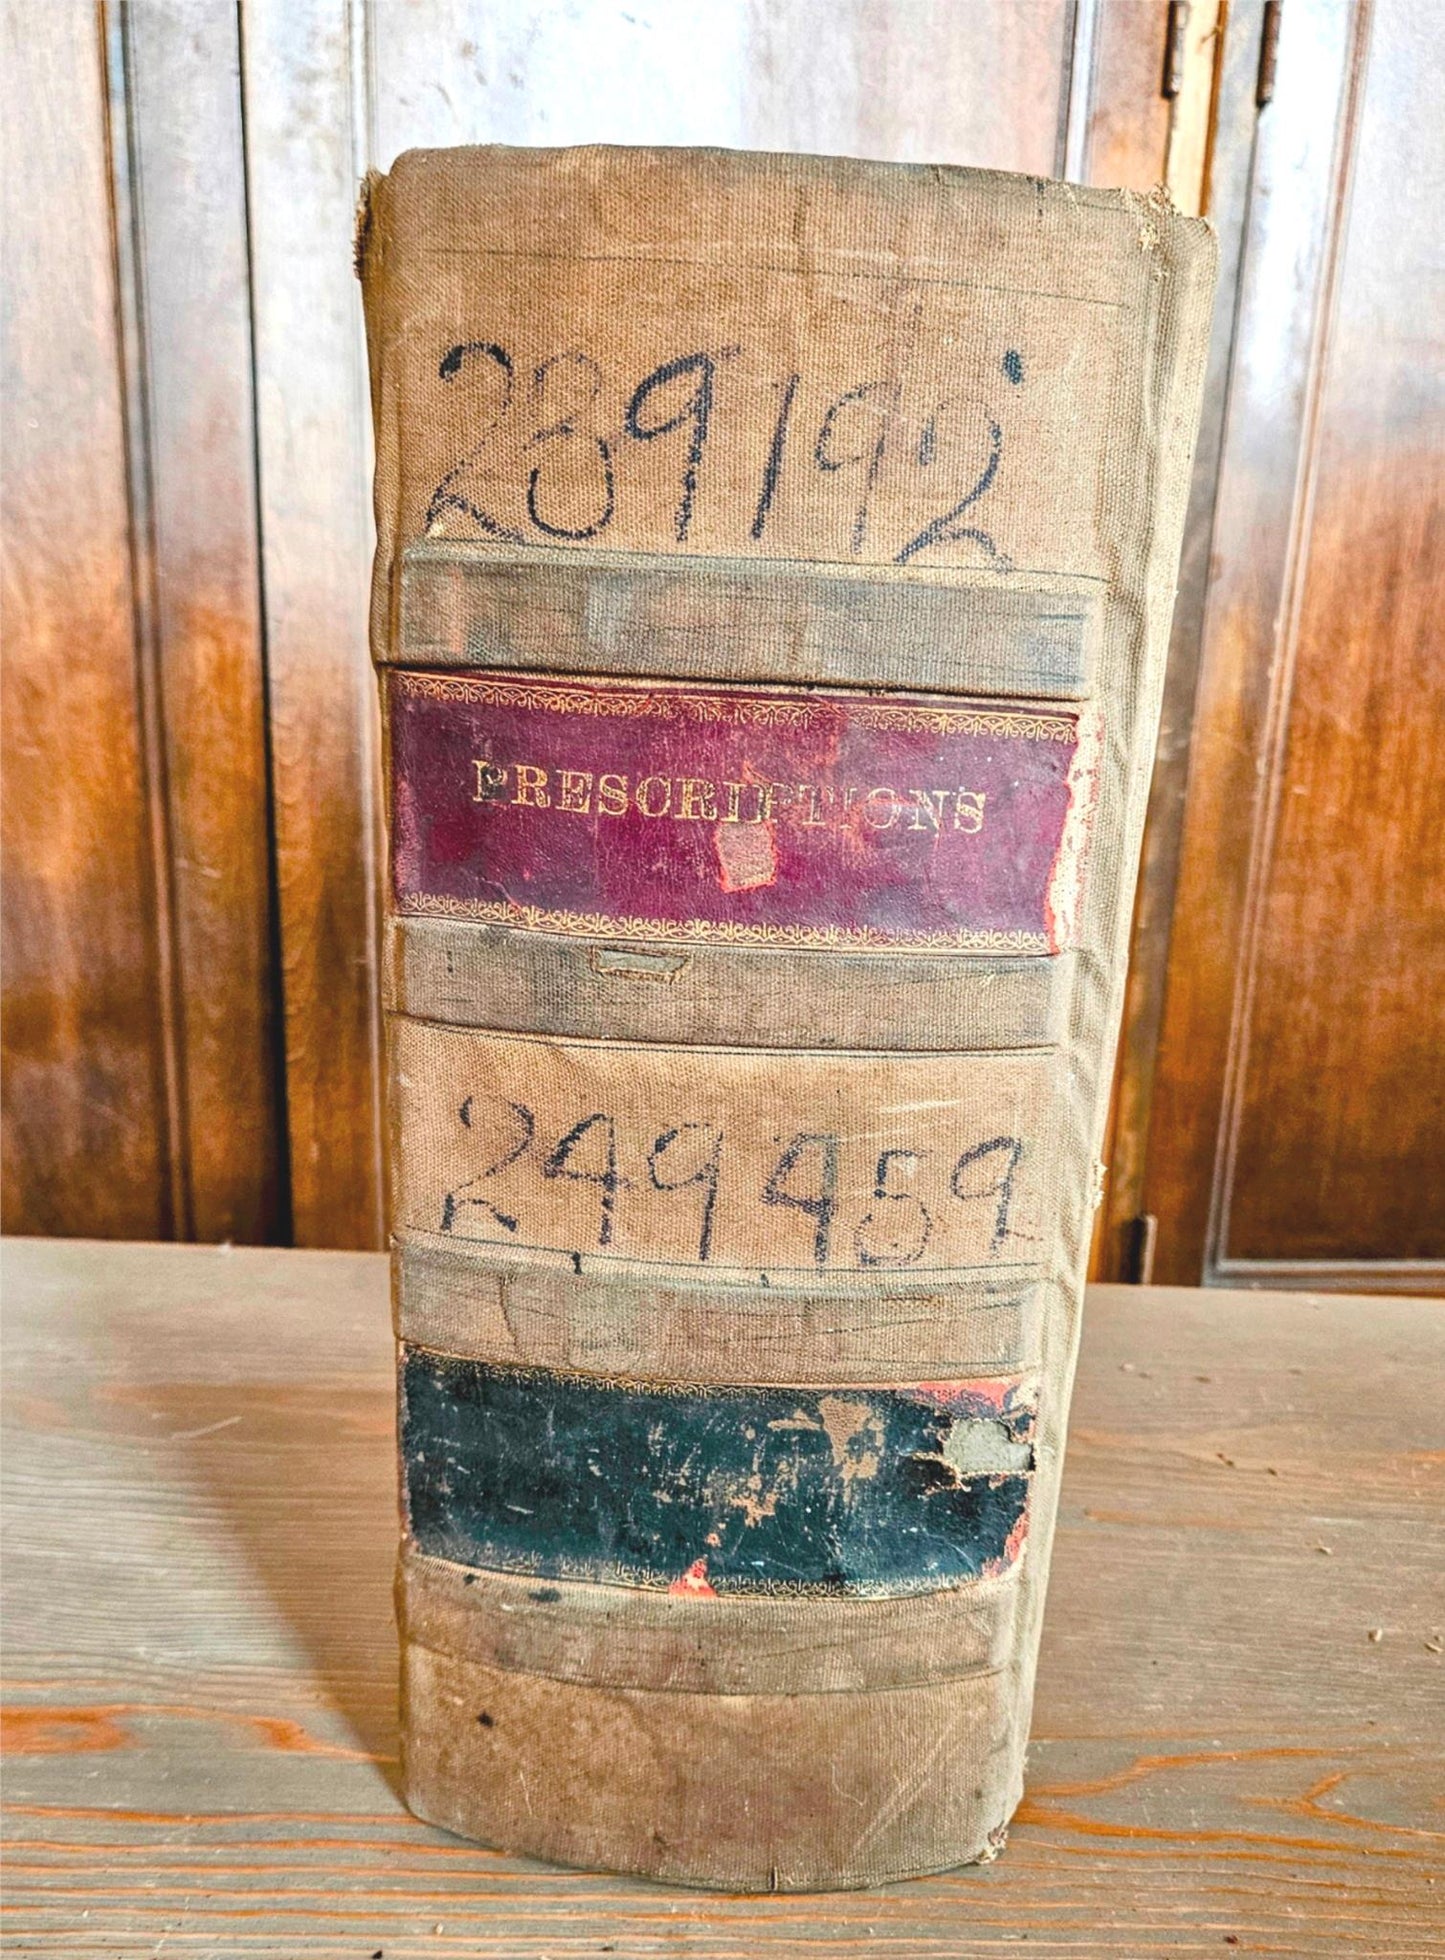 289192
PRESCRIPTIONS
249459